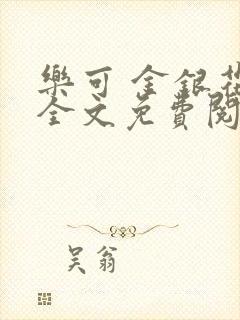 樂可 金銀花
全文免費閱
吳翁